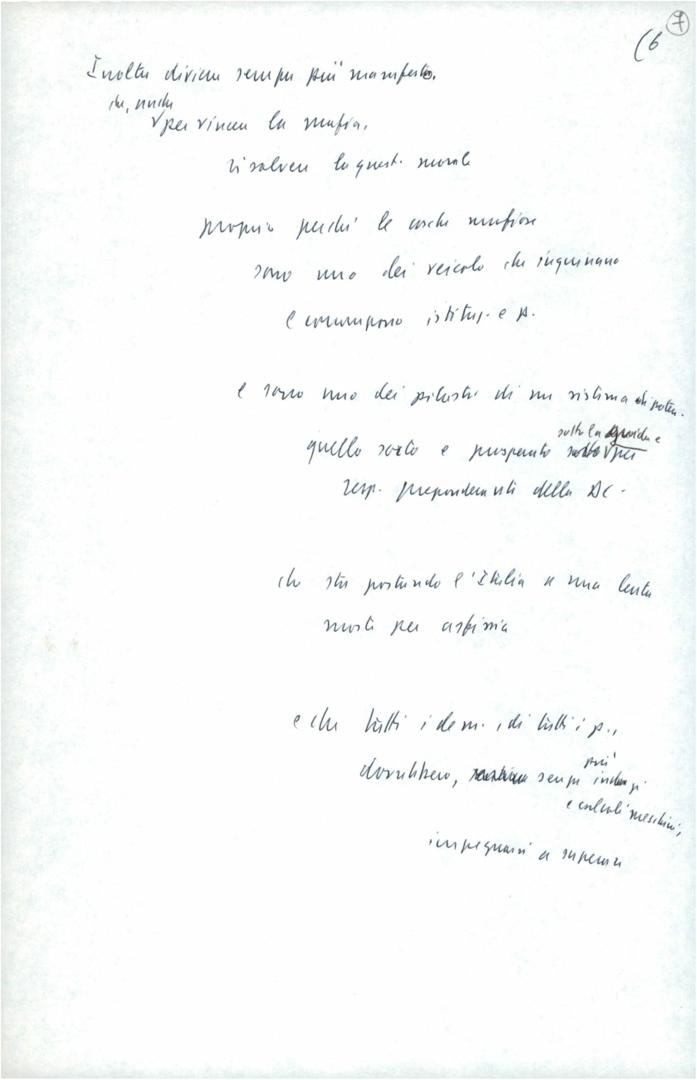 (6 7
Inoltre diviene sempre più manifesto,
che, anche
per vincere la mafia,
risolvere la quest. morale
proprio perché le cosche mafiose
sono uno dei veicolo che inquinano
e corrompono istituz. e p.
e sono uno dei pilastri di un sistema di poten.
sotto la guida e
quello sorto e prosperato sotto per
resp. preponderanti della DC -
che sta portando l'Italia a una lenta
morte per asfissia
e che tutti i dem., di tutti i p.,
più
dovrebbero, senza indugi
e calcoli meschini,
impegnarsi a superare